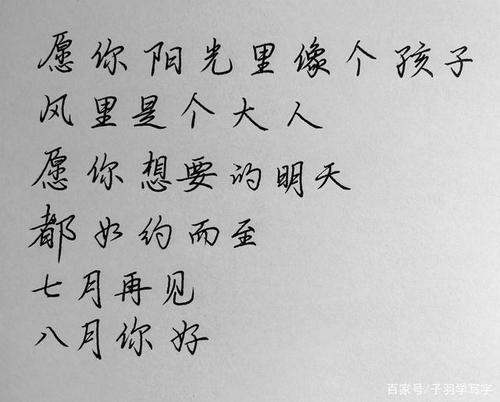 愿你阳光里像个孩子
风里是个大人
愿你想要的明天
都如约而至
七月再见
八月你好
百家号/子羽学写字